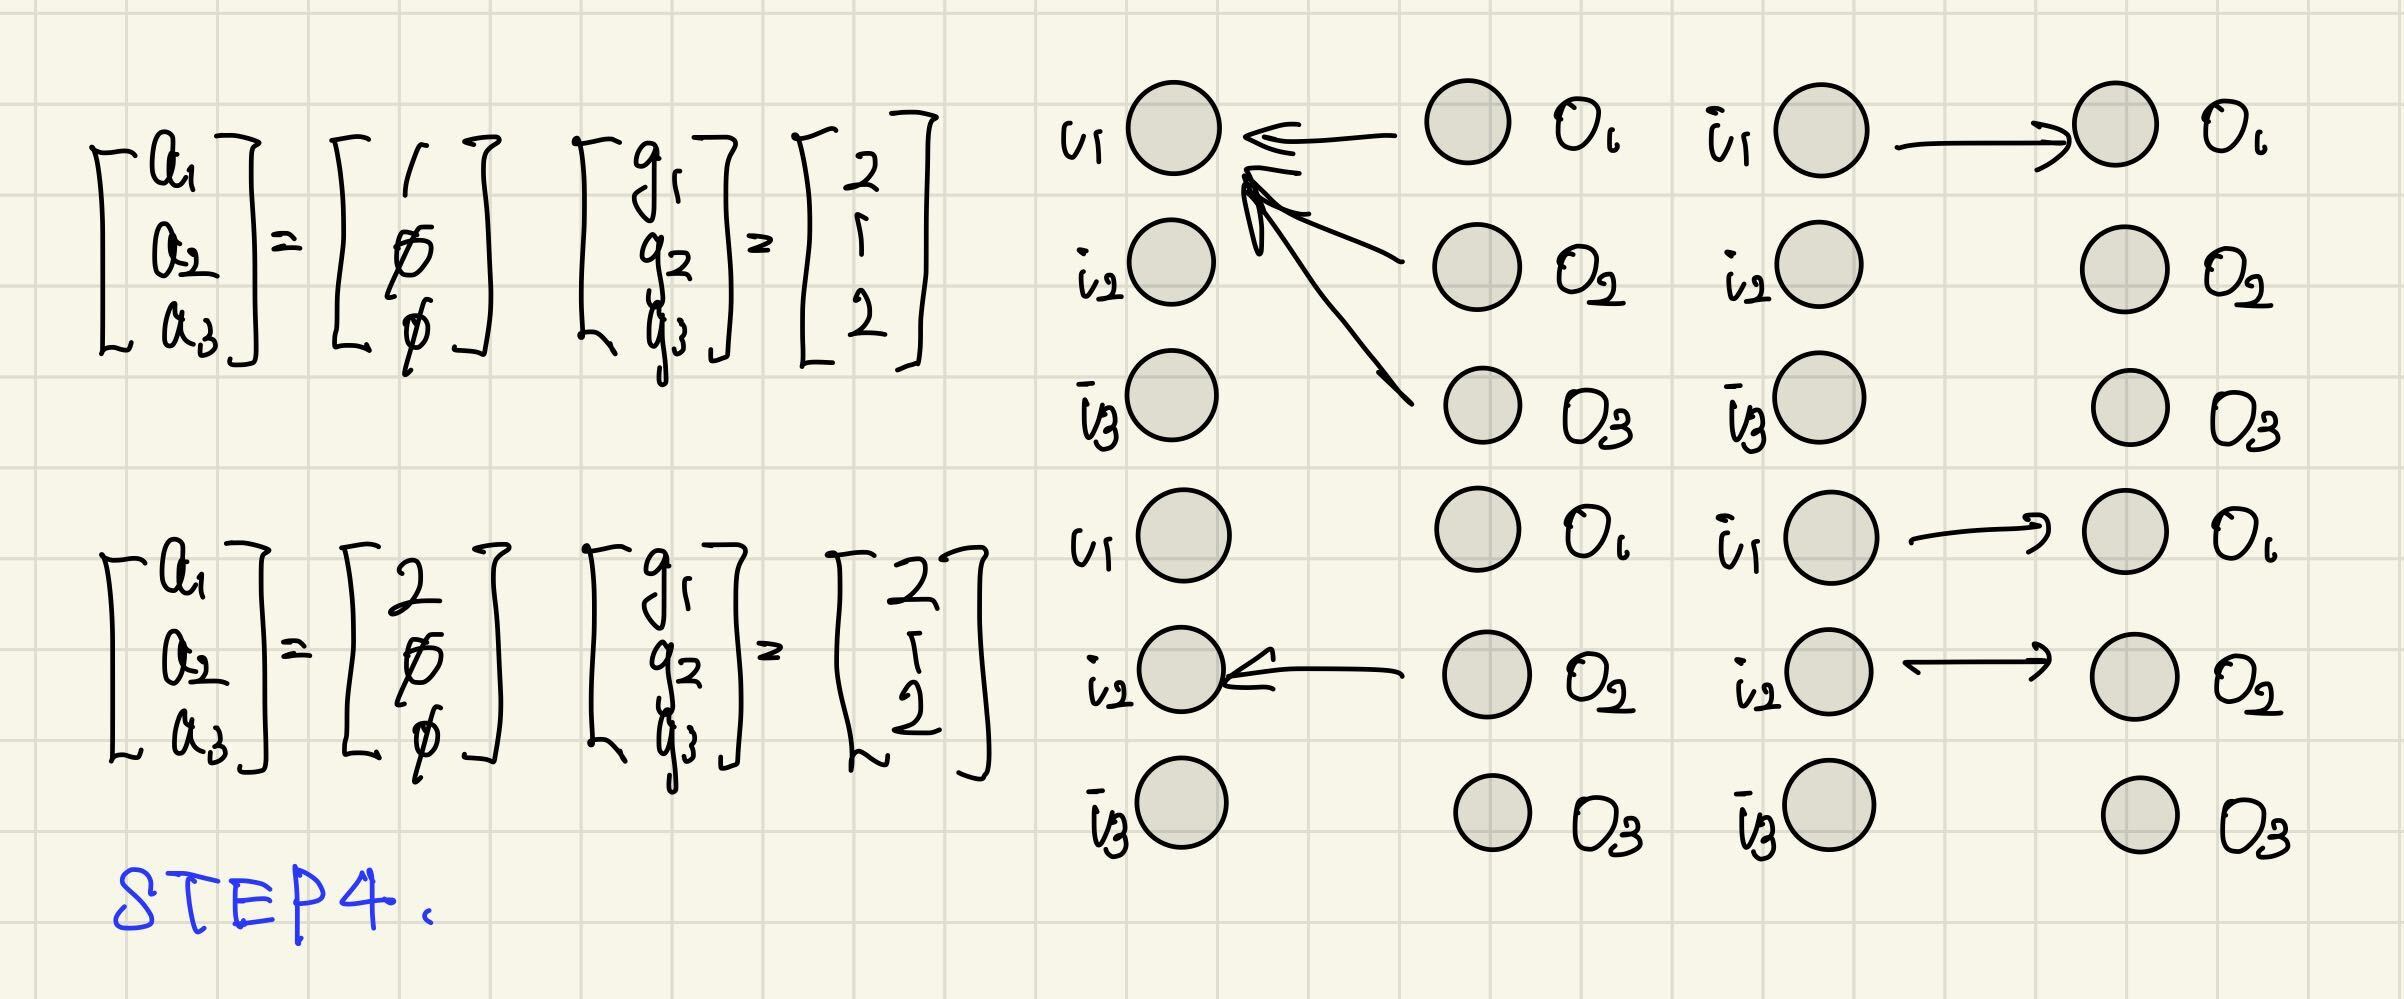 [a1 a2 a3] = [1 0 0] [g1 g2 g3] = [2 1 2]
i1 O1 i1 O1
i2 O2 i2 O2
i3 O3 i3 O3
[a1 a2 a3] = [2 0 0] [g1 g2 g3] = [2 1 2]
i1 O1 i1 O1
i2 O2 i2 O2
i3 O3 i3 O3
STEP4.